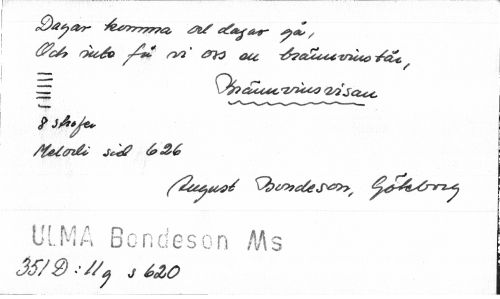 Dagar komma och dagar gå,
Och inte få vi oss en brännvinstår,
Brännvinsvisan
8 strofer
Melodi sid 626
August Bondeson, Göteborg
ULMA Bondeson Ms
351 D : 11 g s 620